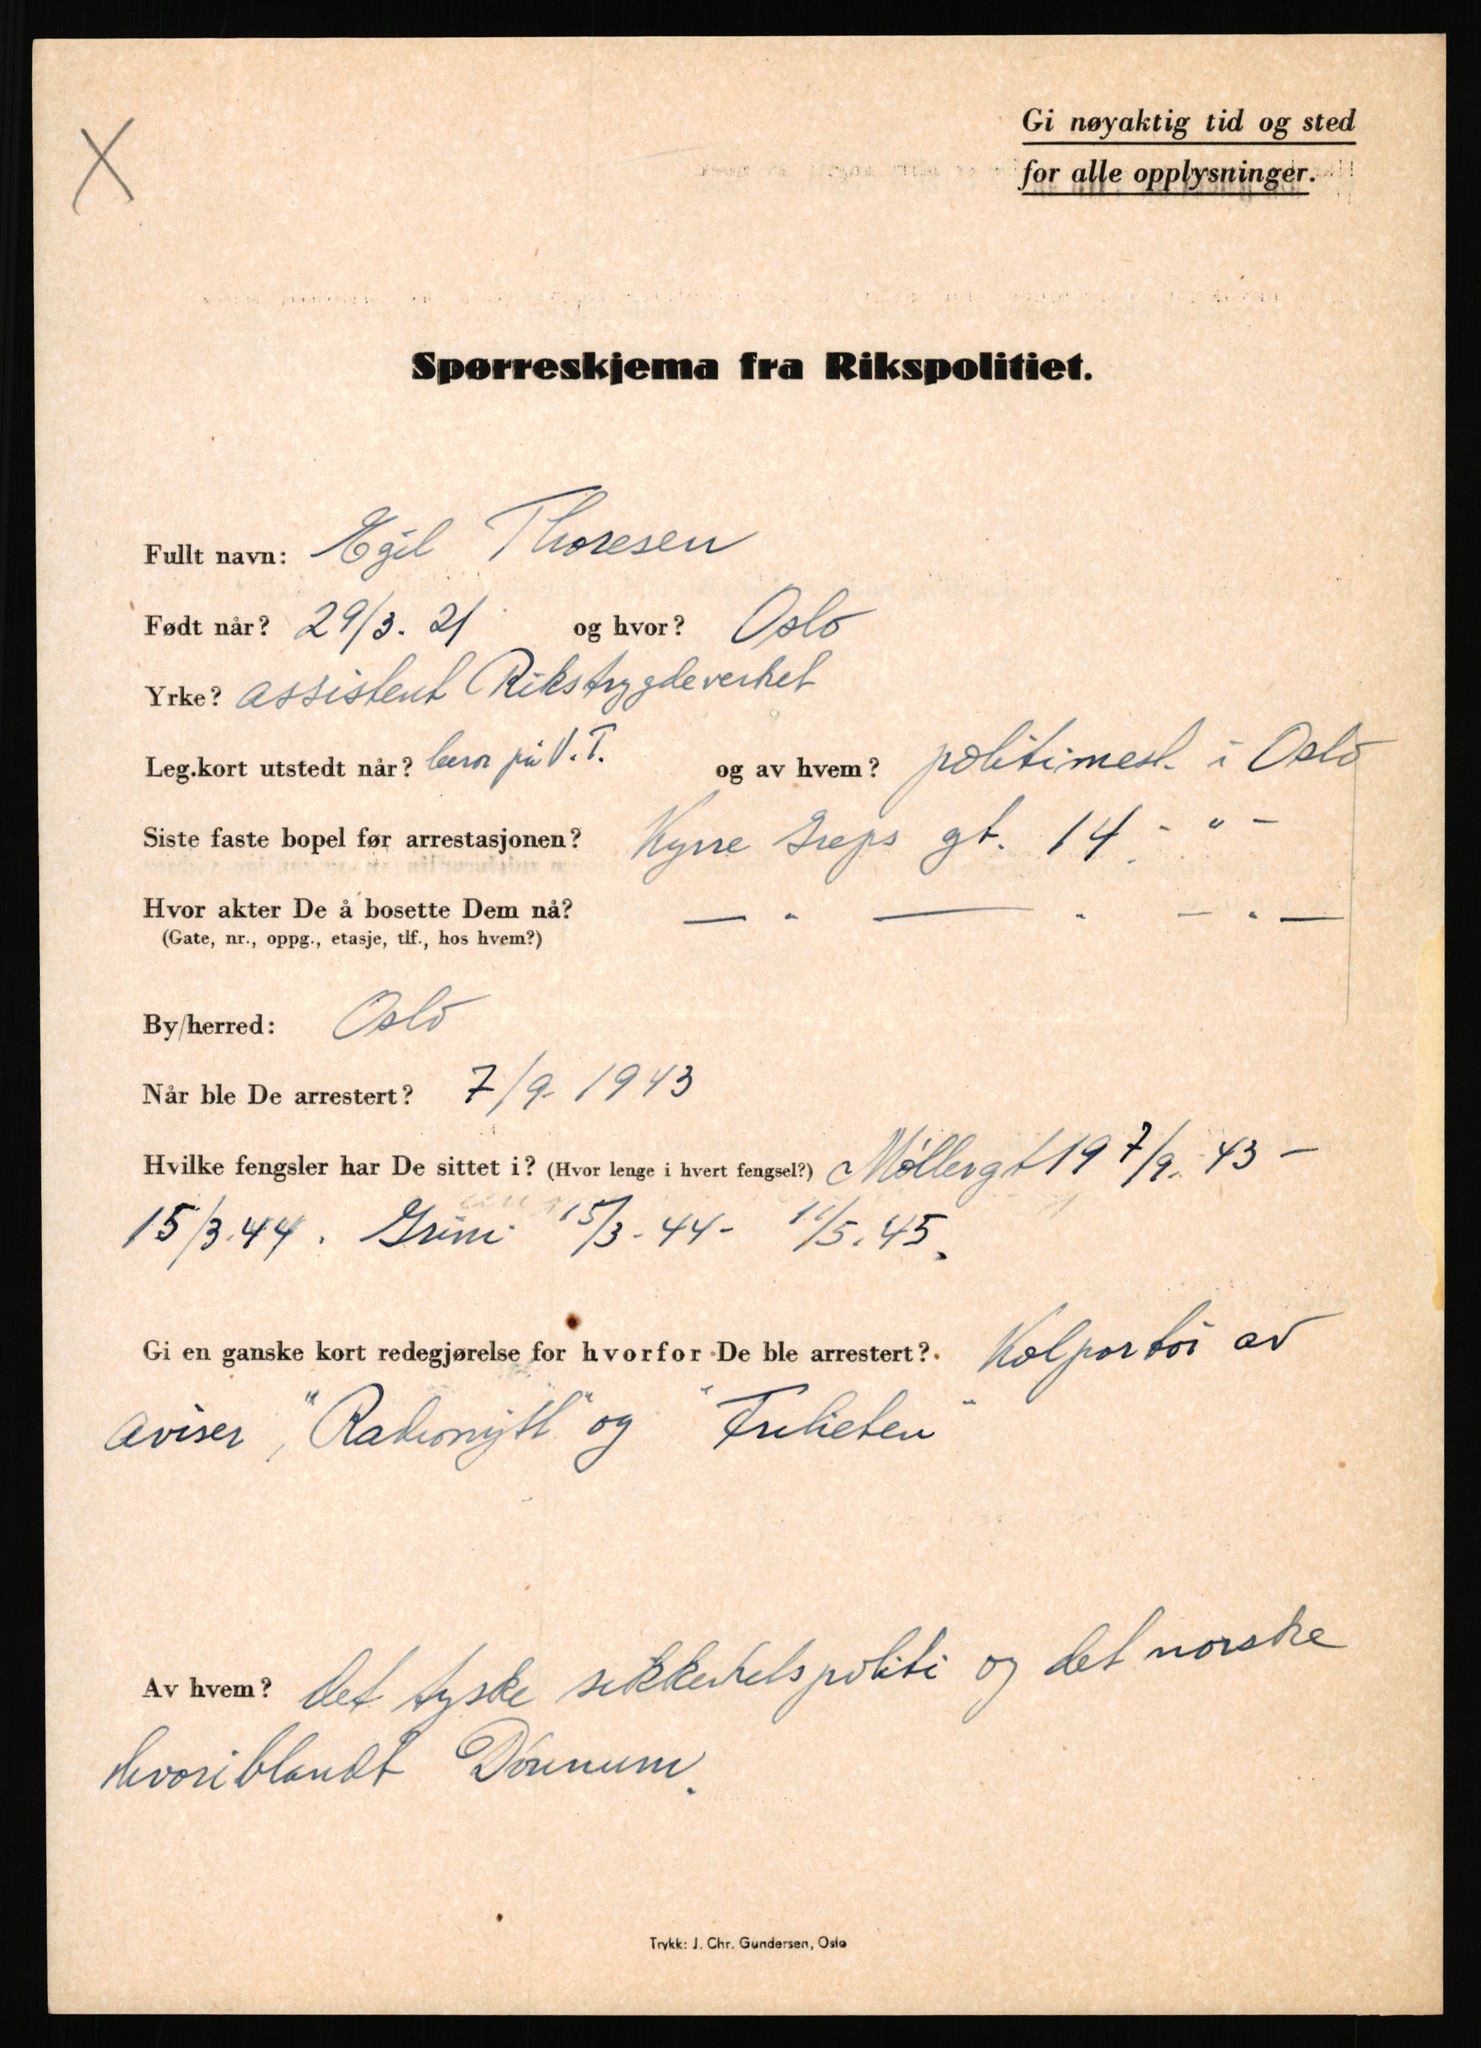 Gi nøyaktig tid og sted
for alle opplysninger.
Spørreskjema fra Rikspolitiet.
Fullt navn: Egil Thoresen
Født når? 29/3. 21 og hvor? Oslo
Yrke? assistent Rikstrygdeverket
Leg.kort utstedt når? beror på V.T. og av hvem? politimest. i Oslo
Siste faste bopel før arrestasjonen? Kyrre Greps gt. 14 - " -
Hvor akter De å bosette Dem nå? — " — " — " —
(Gate, nr., oppg., etasje, tlf., hos hvem?)
By/herred: Oslo
Når ble De arrestert? 7/9. 1943
Hvilke fengsler har De sittet i? (Hvor lenge i hvert fengsel?) Møllergt 19 7/9. 43 -
15/3.44. Grini 15/3-44- 11/5.45.
Gi en ganske kort redegjørelse for hvorfor De ble arrestert? Kolportøi av
aviser, "Radionytt" og "Friheten"
Av hvem? det tyske sikkerhetspoliti og det norske
hvoriblandt Dønnum.
Trykk: J. Chr. Gundersen, Oslo